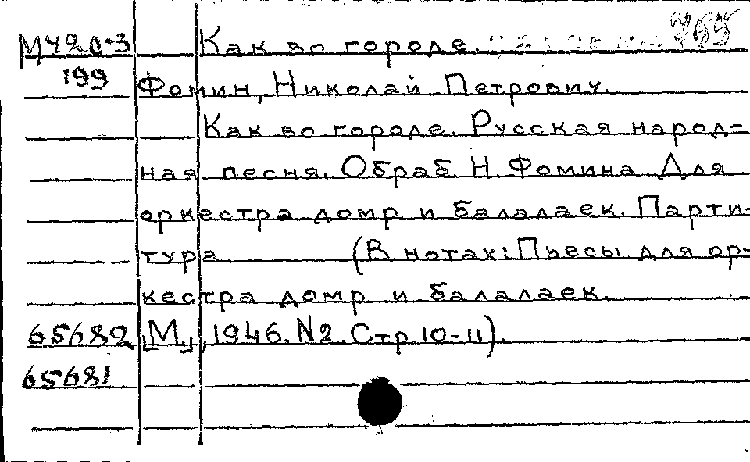 М420-3 Как во городе.
199 Фомин, Николай Петрович.
Как во городе. Русская народ=
ная песня. Обраб Н Фомина Для
оркестра домр и балалаек. Парти-
тура (В нотах: Пьесы для ор-
кестра домр и балалаек.
65682 [М.], 1946. №2. Стр. 10-11).
65681